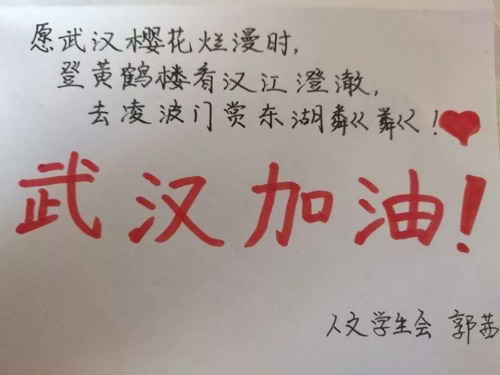 愿武汉樱花烂漫时,
登黄鹤楼看汉江澄澈,
去凌波门赏东湖粼粼!
武汉加油!
人文学生会 郭茜